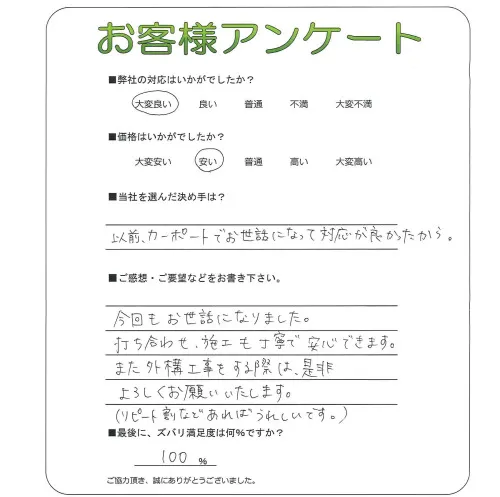 お客様アンケート
■弊社の対応はいかがでしたか？
大変良い 良い 普通 不満 大変不満
■価格はいかがでしたか？
大変安い 安い 普通 高い 大変高い
■当社を選んだ決め手は？
以前、カーポートでお世話になって対応が良かったから。
■ご感想・ご要望などをお書き下さい。
今回もお世話になりました。
打ち合わせ、施工も丁寧で安心できます。
また外構工事をする際は、是非
よろしくお願いいたします。
(リピート割などであればうれしいです。)
■最後に、ズバリ満足度は何%ですか？
100 %
ご協力頂き、誠にありがとうございました。